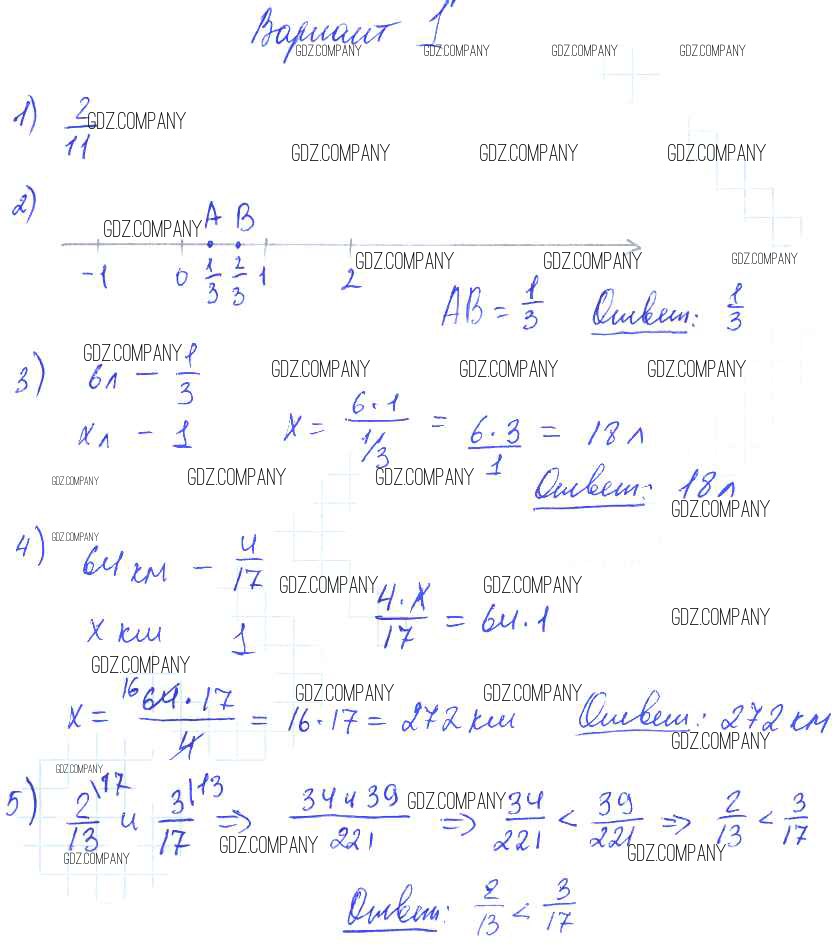 Вариант 1
GDZ.COMPANY GDZ.COMPANY GDZ.COMPANY GDZ.COMPANY
1) 2/11 GDZ.COMPANY
GDZ.COMPANY GDZ.COMPANY GDZ.COMPANY
2) GDZ.COMPANY A B
GDZ.COMPANY GDZ.COMPANY GDZ.COMPANY
-1 0 1/3 2/3 1 2
AB = 1/3 Ответ: 1/3
GDZ.COMPANY
3) 6л - 1/3 GDZ.COMPANY GDZ.COMPANY GDZ.COMPANY
xл - 1 x = 6·1 / 1/3 = 6·3/1 = 18л
GDZ.COMPANY GDZ.COMPANY GDZ.COMPANY
Ответ: 18л
GDZ.COMPANY
4) GDZ.COMPANY
64 км - 4/17
GDZ.COMPANY GDZ.COMPANY
x км 1 4·x/17 = 64·1 GDZ.COMPANY
GDZ.COMPANY
GDZ.COMPANY GDZ.COMPANY
x = 16 64·17/4 = 16·17 = 272 км Ответ: 272 км
GDZ.COMPANY
GDZ.COMPANY
5) 2/13 \17 и 3/17 |13 ⇒ 34 и 39/221 GDZ.COMPANY ⇒ 34/221 < 39/221 ⇒ 2/13 < 3/17
GDZ.COMPANY GDZ.COMPANY GDZ.COMPANY
Ответ: 2/13 < 3/17